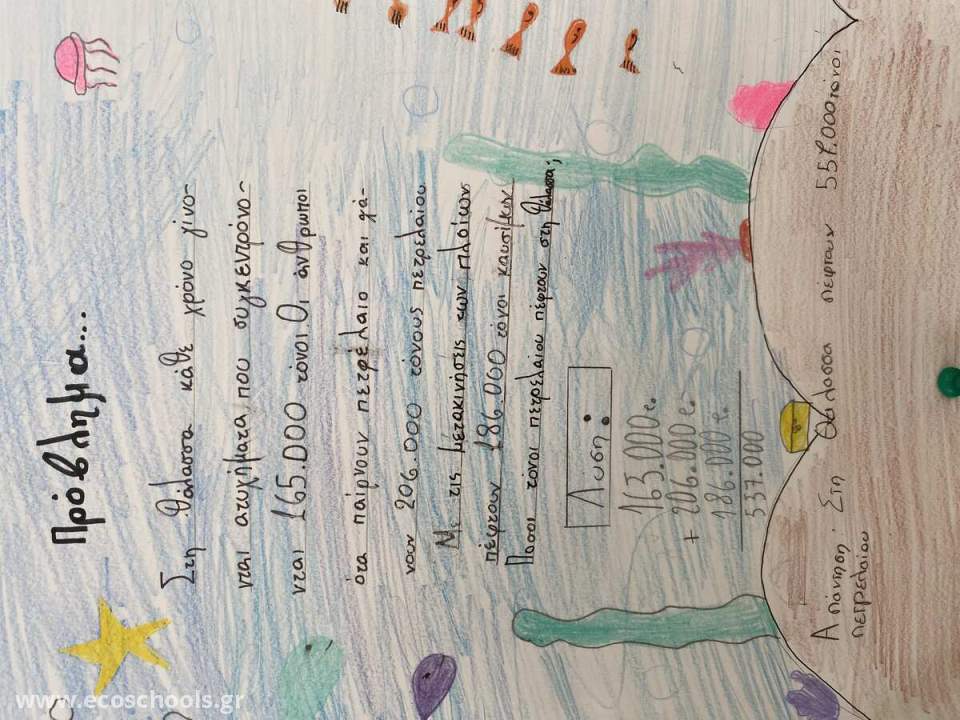 Πρόβλημα...
Στη θάλασσα κάθε χρόνο γίνο-
νται ατυχήματα που συγκεντρόνο-
νται 165.000 τόνοι. Οι άνθρωποι
ότα παίρνουν πετρέλαιο και χά-
νουν 206.000 τόνους πετρελαίου
Με τις μετακινήσεις των πλοίων
πέφτουν 186.000 τόνοι καυσίμων
Πόσοι τόνοι πετρελαίου πέφτουν στη θάλασσα;
Λύση:
165.000 τ.
+ 206.000 τ.
186.000 τ.
557.000
Απάντηση: Στη θάλασσα πέφτουν 557.000 τόνοι
πετρελαίου
www.ecoschools.gr